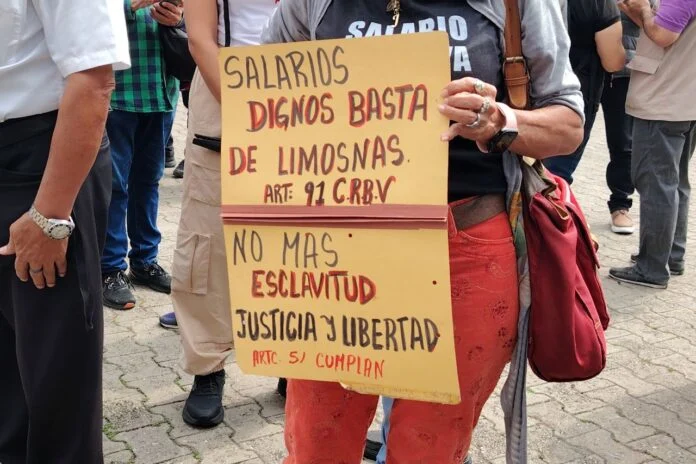 SALARIO
YA
SALARIOS
DIGNOS BASTA
DE LIMOSNAS.
ART: 91 C.R.B.V
NO MAS
ESCLAVITUD
JUSTICIA Y LIBERTAD
ARTC. S/ CUMPLAN